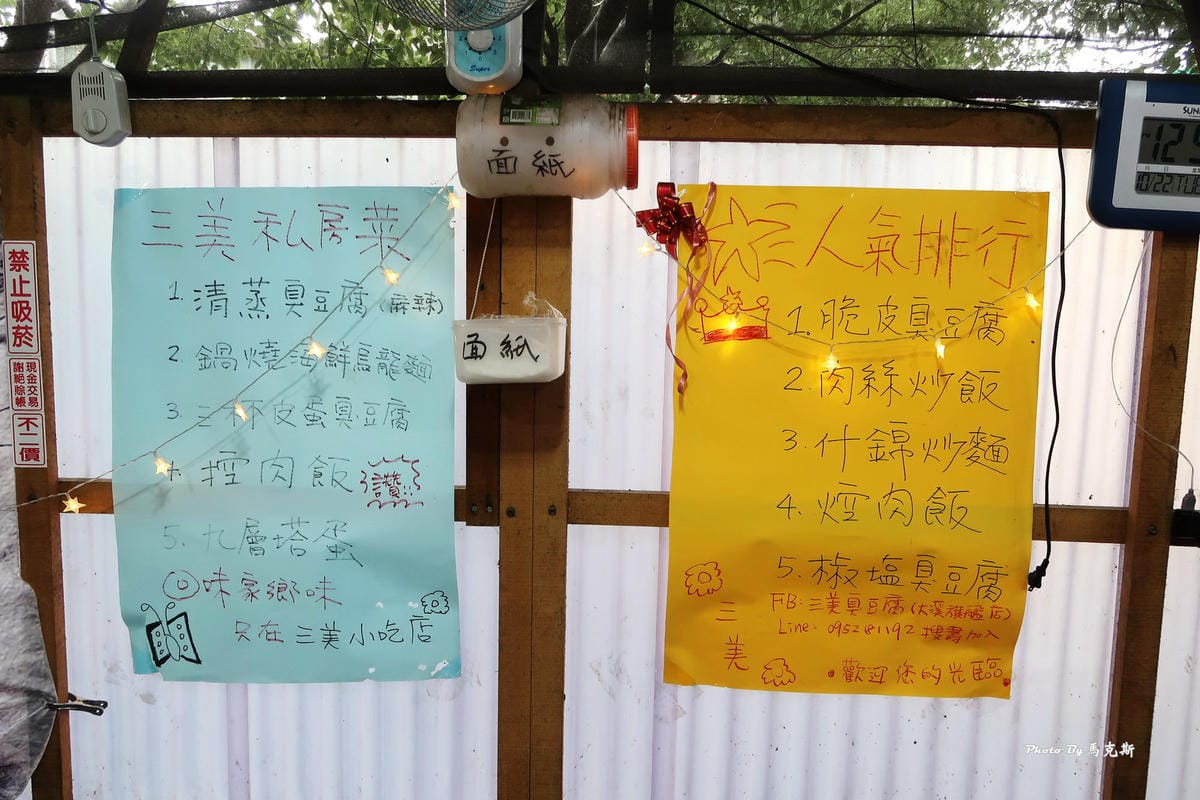 Super
面紙
SUN
12:5
10/22
禁止吸菸
現金交易
謝絕賒帳
不二價
三美私房菜
1. 清蒸臭豆腐(麻辣)
2. 鍋燒海鮮烏龍麵
3. 三杯皮蛋臭豆腐
4. 控肉飯 讚!!
5. 九層塔蛋
味家鄉味
只在三美小吃店
面紙
人氣排行
1. 脆皮臭豆腐
2. 肉絲炒飯
3. 什錦炒麵
4. 焢肉飯
5. 椒塩臭豆腐
FB: 三美臭豆腐(大溪旗艦店)
Line: 095281192 搜尋加入
三美
•歡迎您的光臨
Photo By 馬克斯